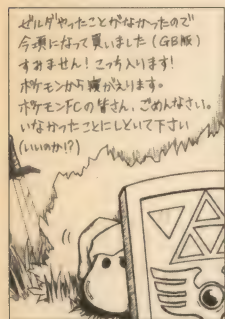 ゼルダやったことがなかったので
今頃になって買いました(GB版)
すみません!こっち入ります!
ポケモンから寝がえります。
ポケモンFCの皆さん、ごめんなさい。
いなかったことにしといて下さい
(いいのか!?)